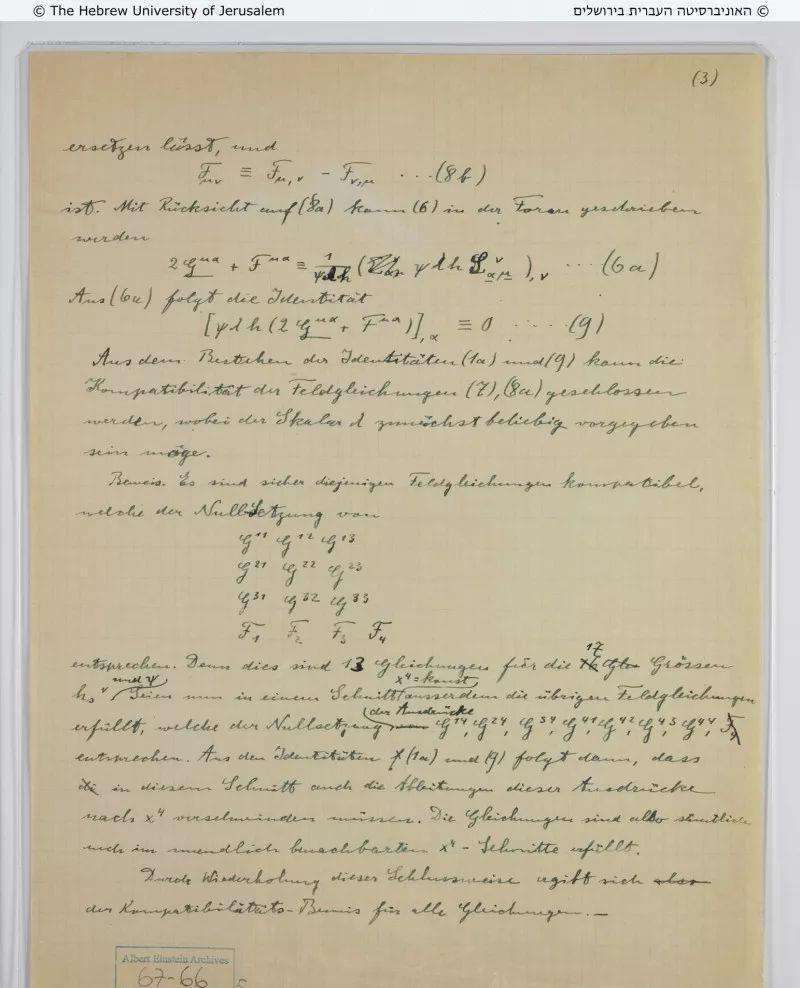 © The Hebrew University of Jerusalem
© האוניברסיטה העברית בירושלים
(3)
ersetzen lässt, und
F_μν ≡ F_μ,ν − F_ν,μ ... (8b)
ist. Mit Rücksicht auf (8a) kann (6) in der Form geschrieben
werden
2 G^μα + F^μα ≡ 1/ψλh ( ψ λ h L^ν_αμ ),ν ... (6a)
Aus (6a) folgt die Identität
[ψλh (2 G^μα + F^μα)],α ≡ 0 .... (9)
Aus dem Bestehen der Identitäten (1a) und (9) kann die
Kompatibilität der Feldgleichungen (7), (8a) geschlossen
werden, wobei der Skalar λ zunächst beliebig vorgegeben
sein möge.
Beweis. Es sind sicher diejenigen Feldgleichungen kompatibel,
welche der Nullsetzung von
G^11 G^12 G^13
G^21 G^22 G^23
G^31 G^32 G^33
F_1 F_2 F_3 F_4
entsprechen. Denn dies sind 13 Gleichungen für die 17 Grössen
h_s^ν und ψ. Seien nun in einem Schnitt x^4 = konst ausserdem die übrigen Feldgleichungen
erfüllt, welche der Nullsetzung der Ausdrücke G^14, G^24, G^34, G^41, G^42, G^43, G^44
entsprechen. Aus den Identitäten (1a) und (9) folgt dann, dass
in diesem Schnitt auch die Ableitungen dieser Ausdrücke
nach x^4 verschwinden müssen. Die Gleichungen sind also sämtlich
auch im unendlich benachbarten x^4 - Schnitte erfüllt.
Durch Wiederholung dieser Schlussweise ergibt sich
der Kompatibilitäts-Beweis für alle Gleichungen. —
Albert Einstein Archives
67-66